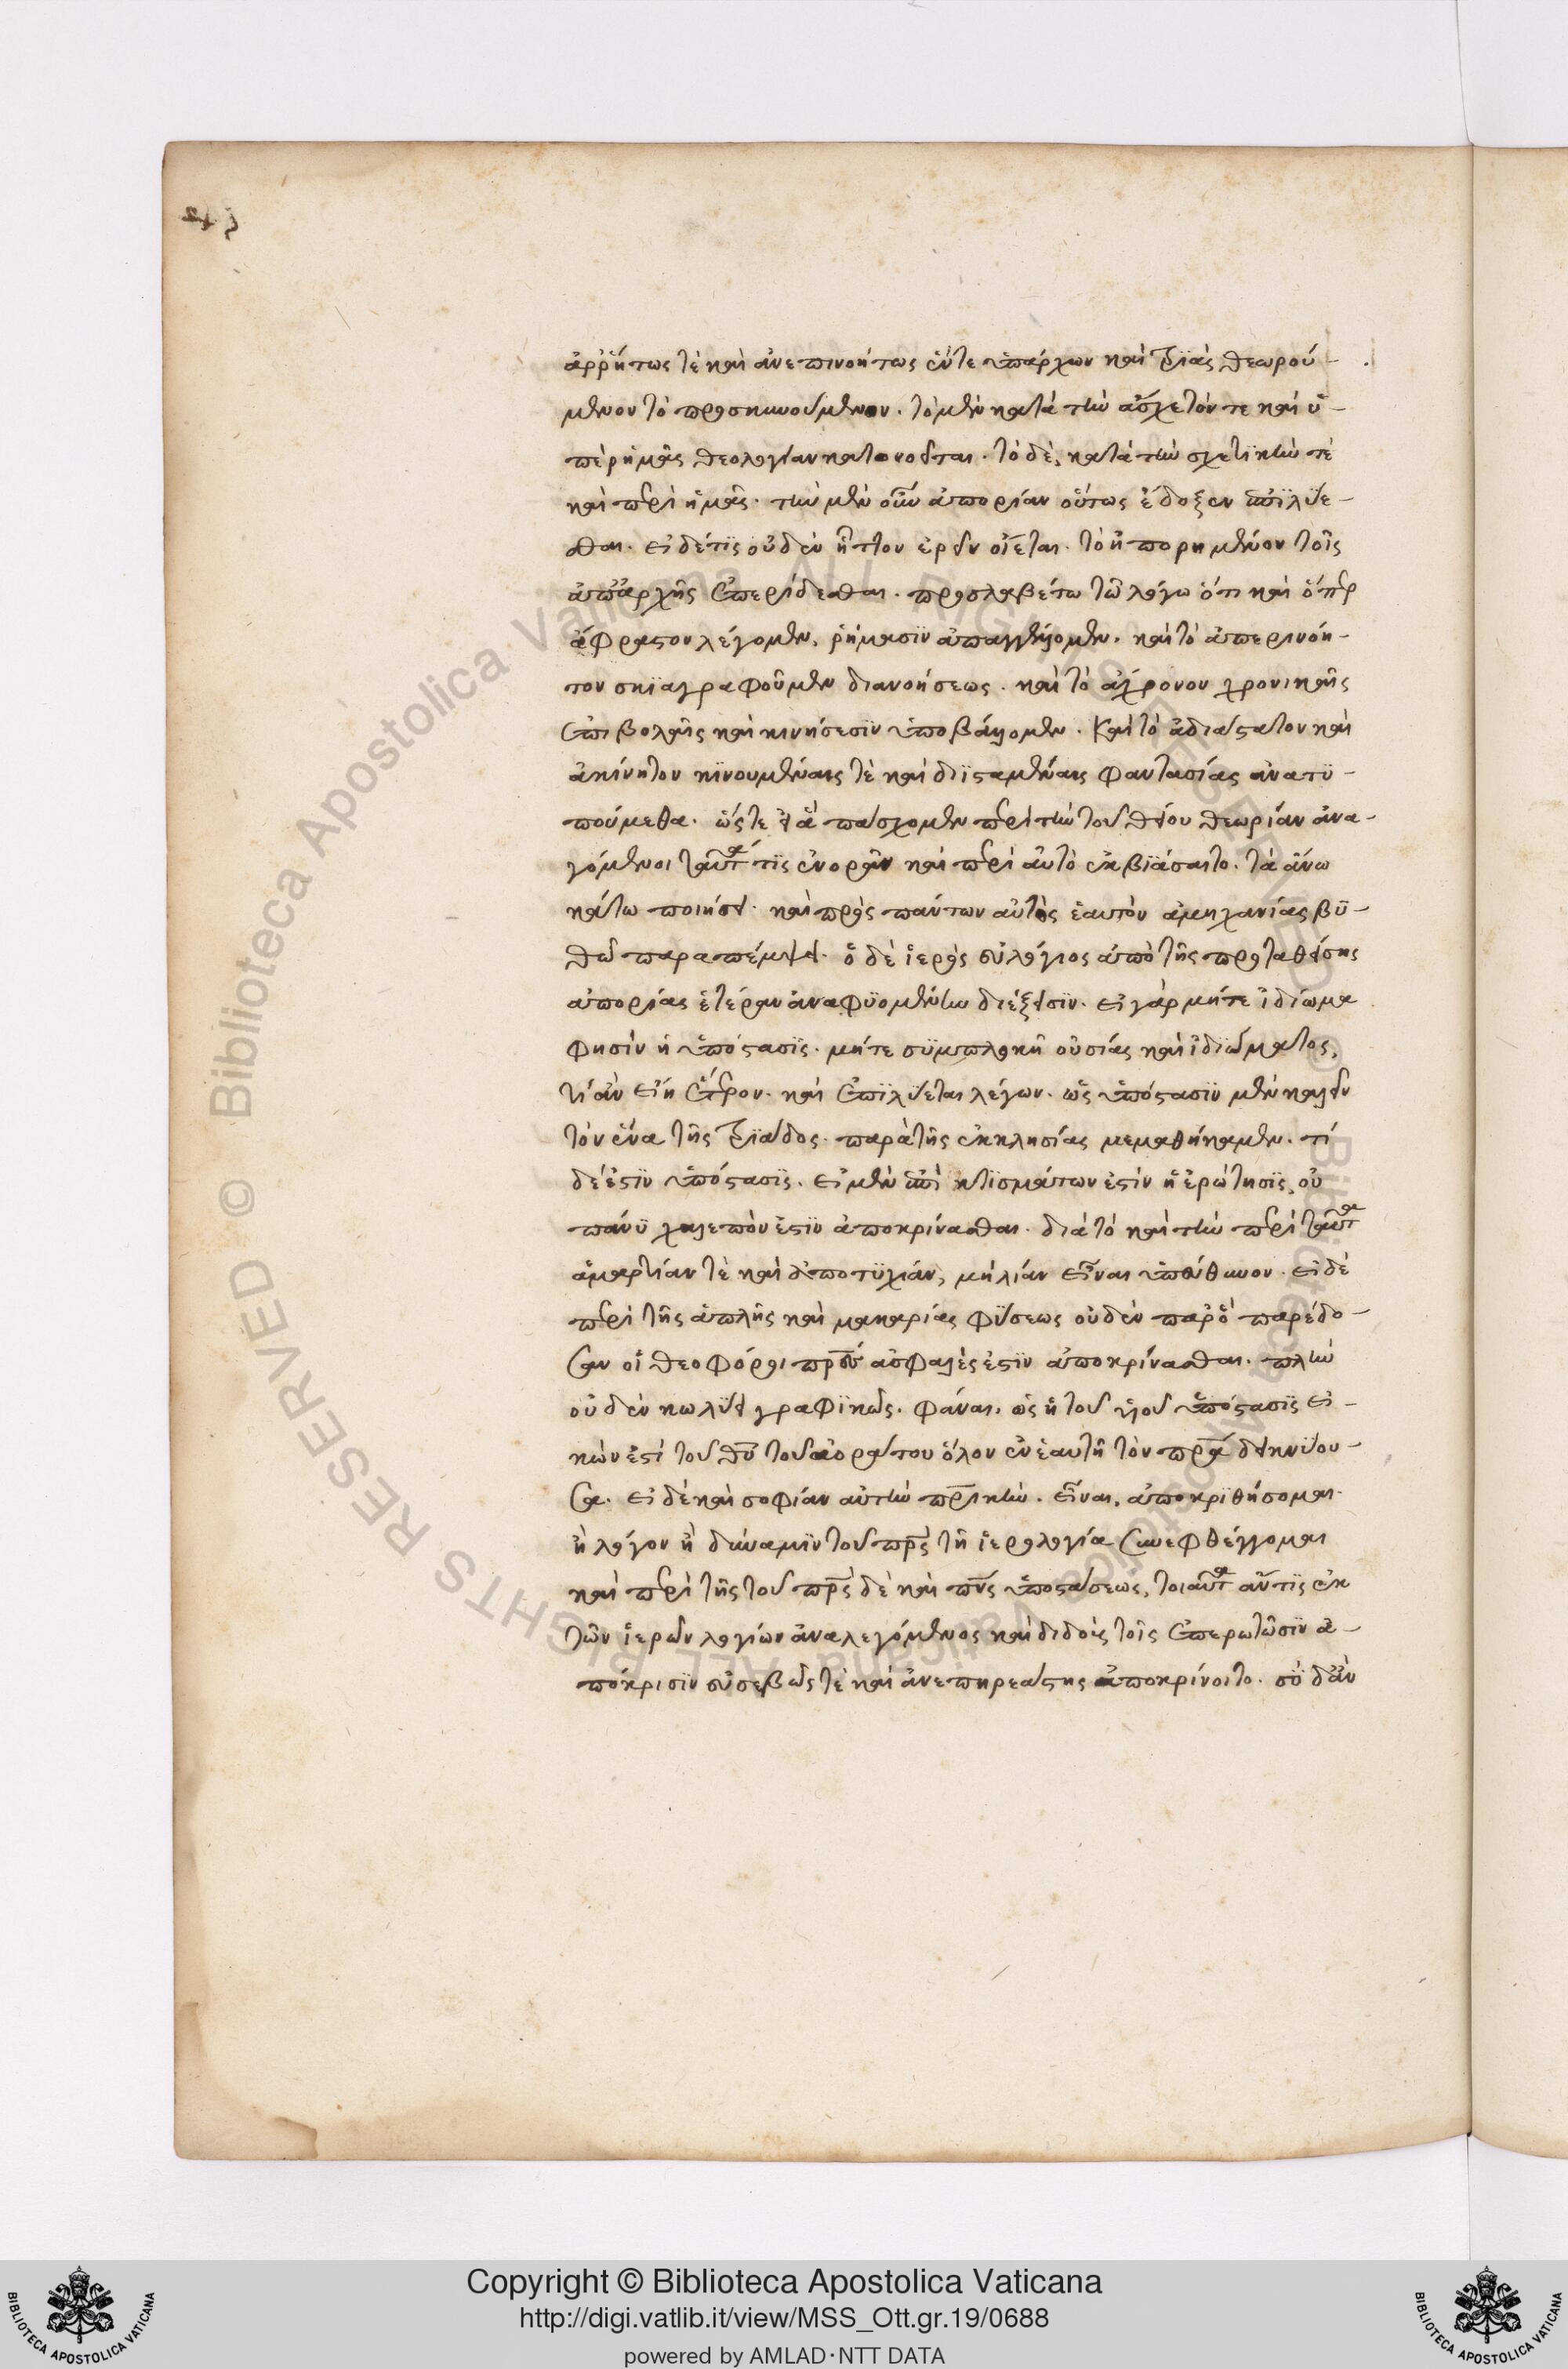 ἀρρήτως τὲ καὶ ἀνεπινοήτως ἕν τε ὑπάρχων καὶ τριὰς θεωρού-
μενον τὸ προσκυνούμενον. τὸ μὲν κατὰ τὴν ἄσχετόν τε καὶ ὑ-
πὲρ ἡμᾶς θεολογίαν κατονοεῖται. τὸ δὲ, κατὰ τὴν σχετικὴν τὲ
καὶ περὶ ἡμᾶς. τὴν μὲν οὖν ἀπορίαν οὕτως ἔδοξεν ἐπϊλϋε-
σθαι. εἰ δέ τις οὐδὲν ἧττον ἐρεῖν οἴεται. τὸ ἠπορημένον τοῖς
ἀπ' ἀρχῆς ἐπερείδεσθαι. προσλαβέτω τῶ λόγω ὅτι καὶ ὅπερ
ἄφραστον λέγομεν, ῥήμασϊν ἀπαγγέλλομεν. καὶ τὸ ἀπερινόη-
τον σκϊαγραφοῦμεν διανοήσεως. καὶ τὸ ἄχρονον χρονικαῖς
ἐπιβολαῖς καὶ κινήσεσϊν ὑποβάλλομεν. Καὶ τὸ ἀδιάστατον καὶ
ἀκίνητον κϊνουμέναις τὲ καὶ διϊσταμέναις φαντασίαις ἀνατϋ-
πούμεθα. ὥστε εἰ ἃ πάσχομεν περὶ τὴν τοῦ θείου θεωρίαν ἀνα-
γόμενοι ταῦτά τις ἐνορᾶν καὶ περὶ αὐτὸ ἐκβϊάσαιτο. τὰ ἄνω
κάτω ποιήσει. καὶ πρὸς πάντων αὐτὸς ἑαυτὸν ἀμηχανίας βϋ-
θῶ παραπέμψει. ὁ δὲ ἱερὸς εὐλόγιος ἀπὸ τῆς προταθείσης
ἀπορίας ἑτέραν ἀναφϋομένην διέξεισϊν. εἰ γὰρ μήτε ἰδίωμα
φησὶν ἡ ὑπόστασϊς. μήτε σϋμπλοκὴ οὐσίας καὶ ἰδϊώματος,
τί ἂν εἴη ἕτερον. καὶ ἐπϊλύεται λέγων. ὡς ὑπόστασϊν μὲν καλεῖν
τὸν ἕνα τῆς τριάδος. παρὰ τῆς ἐκκλησίας μεμαθήκαμεν. τί
δέ ἐστϊν ὑπόστασϊς. εἰ μὲν ἐπὶ κτϊσμάτων ἐστὶν ἡ ἐρώτησϊς, οὐ
πάνϋ χαλεπὸν ἐστϊν ἀποκρίνασθαι. διὰ τὸ καὶ τὴν περὶ ταῦτα
ἁμαρτίαν τὲ καὶ ἀποτϋχίαν, μὴ λίαν εἶναι ὑπεύθυνον. εἰ δὲ
περὶ τῆς ἁπλῆς καὶ μακαρίας φϋσεως οὐδὲν παρ' ὃ παρέδο-
σαν οἱ θεοφόροι πρες ἀσφαλὲς ἐστϊν ἀποκρίνασθαι. πλὴν
οὐδὲν κωλϋει γραφϊκῶς. φάναι, ὡς ἡ τοῦ υἱοῦ ὑπόστασϊς εἰ-
κὼν ἐστὶ τοῦ θυ τοῦ ἀοράτου ὅλον ἐν ἑαυτῆ τὸν πρα δεικνύου-
σα. εἰ δὲ καὶ σοφίαν αὐτὴν πρικὴν. εἶναι, ἀποκρϊθήσομαι.
ἢ λόγον ἢ δύναμϊν τοῦ πρς τῆ ἱερολογία συνεφθέγγομαι
καὶ περὶ τῆς τοῦ πρς δὲ καὶ πνς ὑποστάσεως, τοιαῦτα ἄν τϊς ἐκ
τῶν ἱερῶν λογίων ἀναλεγόμενος καὶ διδοὺς τοῖς ἐπερωτῶσϊν ἀ-
πόκρισϊν εὐσεβῶς τὲ καὶ ἀνεπηρεάστης ἀποκρίνοιτο. σϋ δ' ἂν
Copyright © Biblioteca Apostolica Vaticana
http://digi.vatlib.it/view/MSS_Ott.gr.19/0688
powered by AMLAD·NTT DATA
BIBLIOTECA APOSTOLICA VATICANA
BIBLIOTECA APOSTOLICA VATICANA